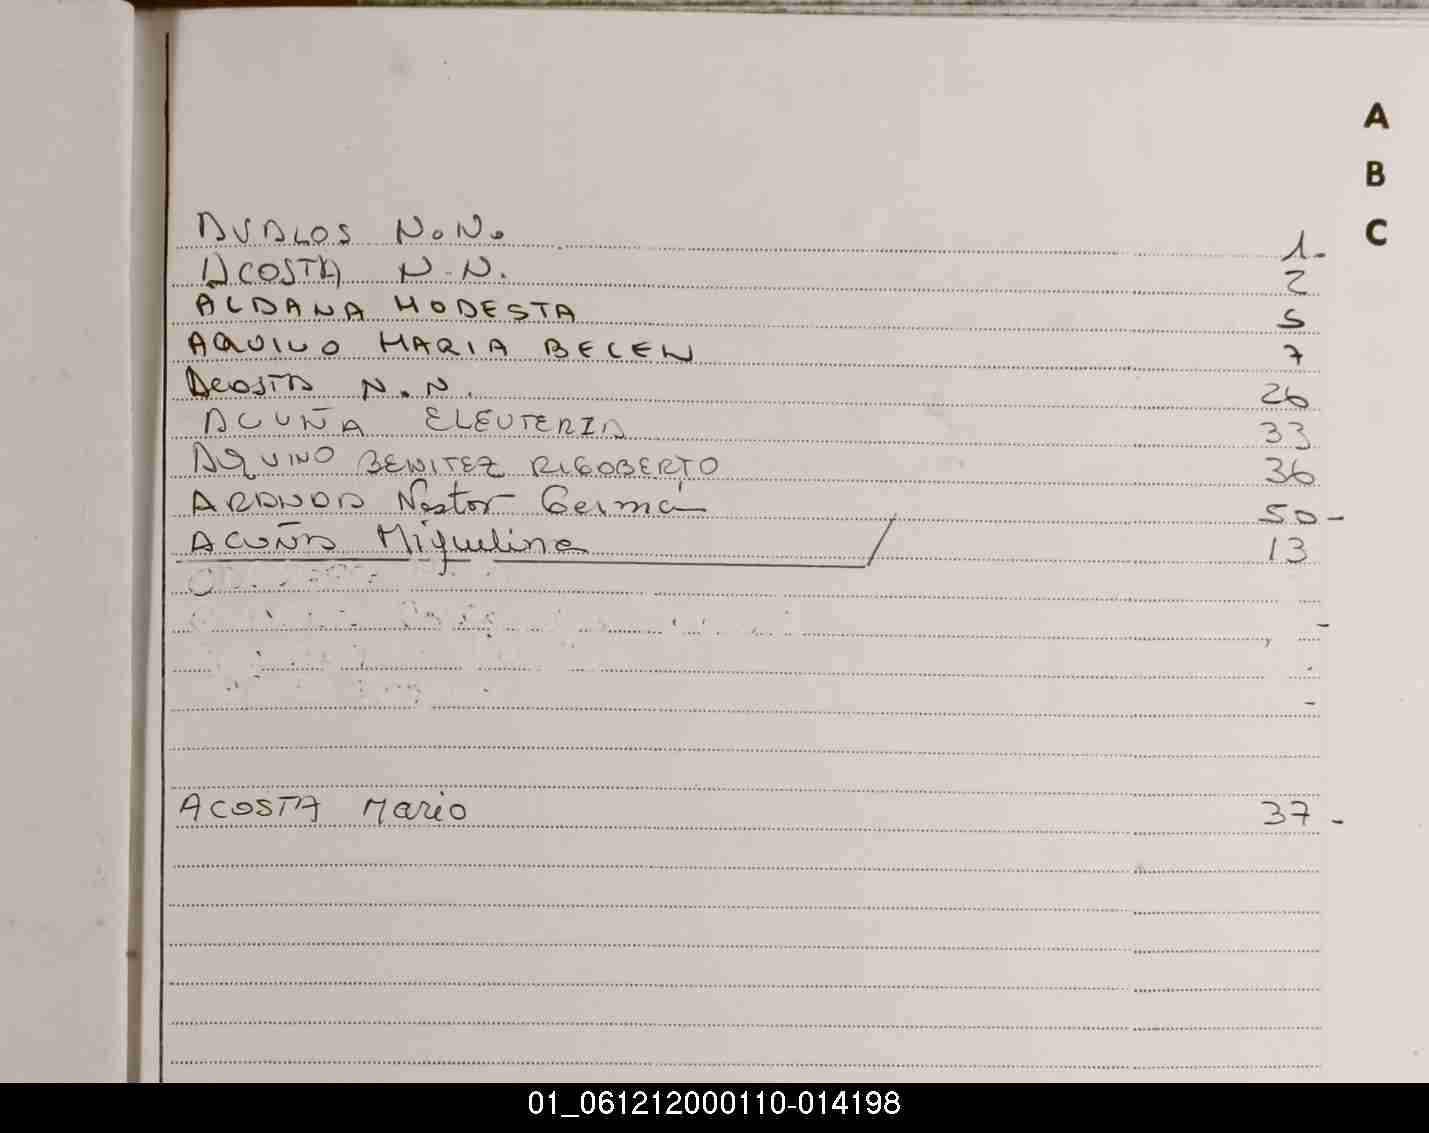 A
B
C
AVALOS N.N. 1.-
ACOSTA N.N. 2
ALDANA MODESTA 5
AQUINO MARIA BELEN 7
ACOSTA N.N. 26
ACUÑA ELEUTERIA 33
AQUINO BENITEZ RIGOBERTO 36
ARANDA Nestor Germán 50-
ACUÑA Miguelina 13
ACOSTA Mario 37-
01_061212000110-014198